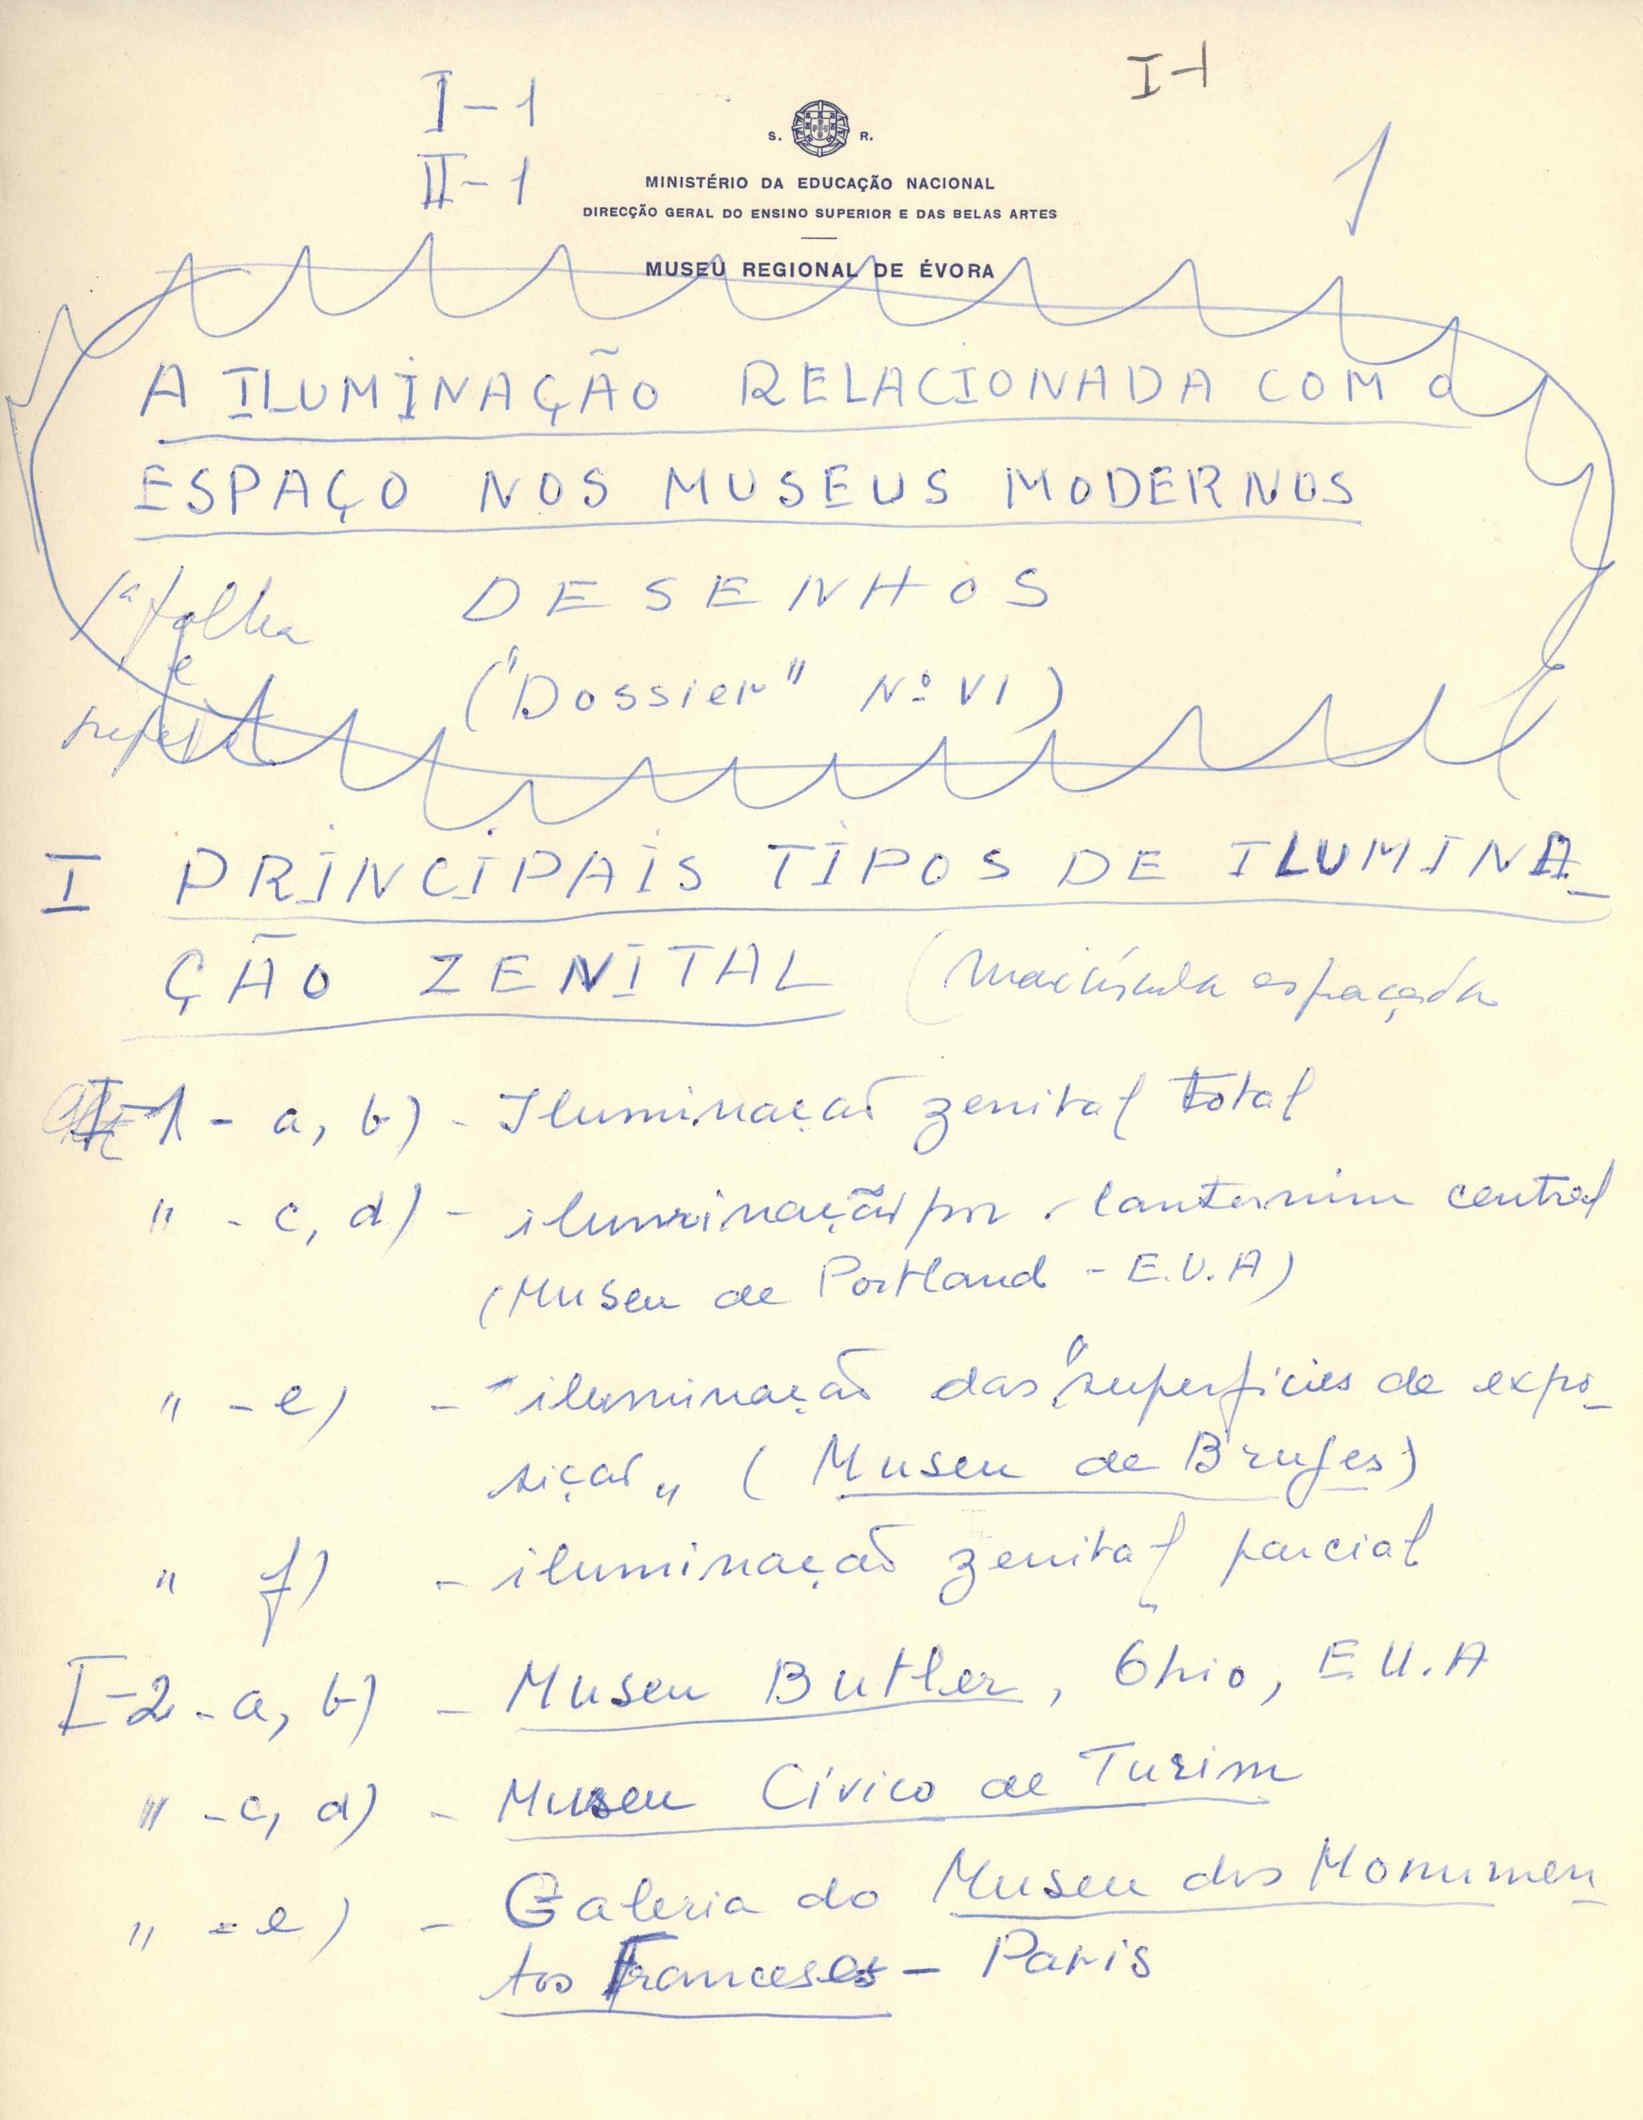 I-1
I-1
II-1
1
S. R.
MINISTÉRIO DA EDUCAÇÃO NACIONAL
DIRECÇÃO GERAL DO ENSINO SUPERIOR E DAS BELAS ARTES
MUSEU REGIONAL DE ÉVORA
A ILUMINAÇÃO RELACIONADA COM O
ESPAÇO NOS MUSEUS MODERNOS
1ª folha
DESENHOS
e
("Dossier" Nº VI)
I PRINCIPAIS TIPOS DE ILUMINA-
ÇÃO ZENITAL (Maiúscula espaçada
I-1 - a, b) - Iluminação zenital total
" - c, d) - iluminação por lanternim central
(Museu de Portland - E.U.A)
" - e) - iluminação das "superfícies de expo-
sição" (Museu de Bruges)
" f) - iluminação zenital parcial
I-2 - a, b) - Museu Butler, Ohio, E.U.A
" - c, d) - Museu Cívico de Turim
" - e) - Galeria do Museu dos Monumen-
tos Franceses - Paris